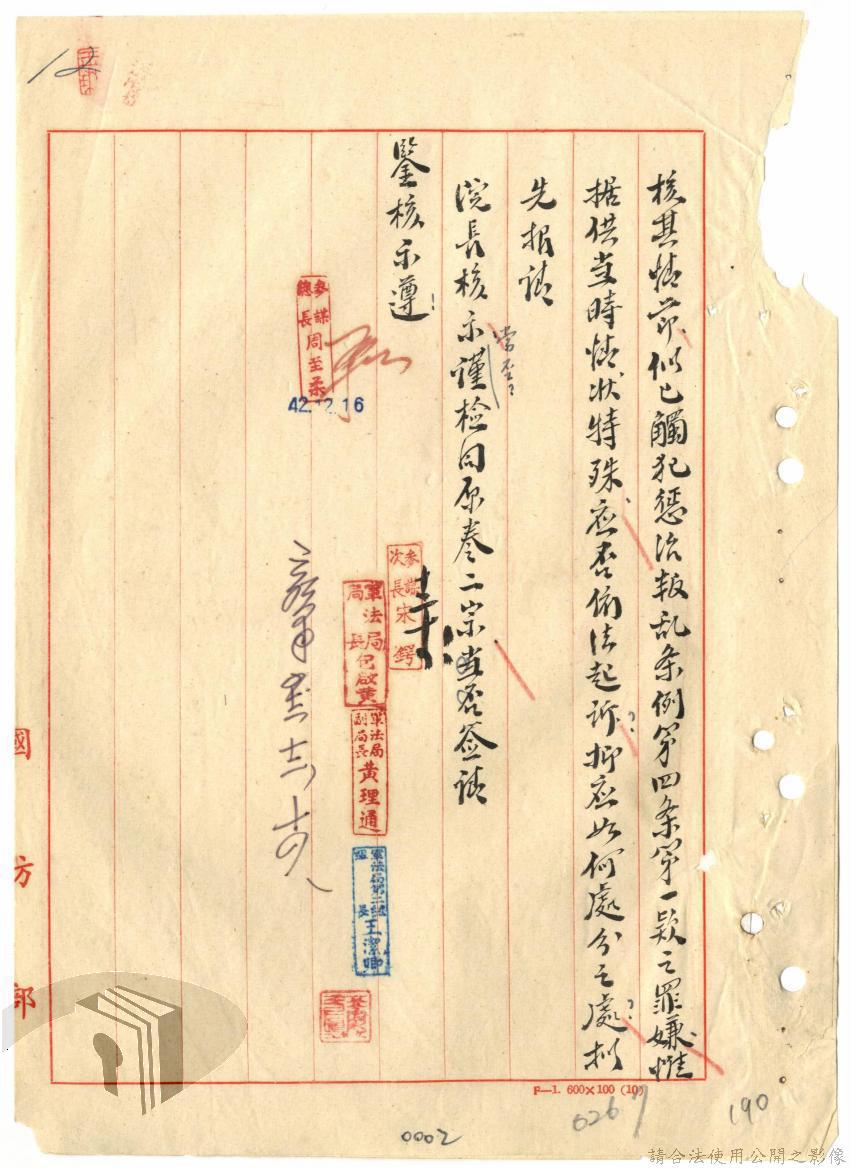 核其情節似已觸犯惩治叛乱条例第四条第一款之罪嫌惟
据供当時情状特殊应否依法起訴抑应如何處分之處拟
先报請
院長核示謹检同原卷二宗当否签請
當否
鑒核示遵
參謀總長周至柔
42.12.16
參謀次長宋鍔
軍法局局長包啟黃
軍法局副局長黃理通
軍法局第二組組長王潔卿
國防部
12
F—1. 600×100 (10)
190
0002
請合法使用公開之影像